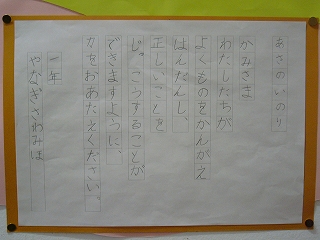 あさのいのり
かみさま
わたしたちが
よくものをかんがえ
はんだんし、
正しいことを
じっこうすることが
できますように、
力をおあたえください。
一年
やなぎさわみほ